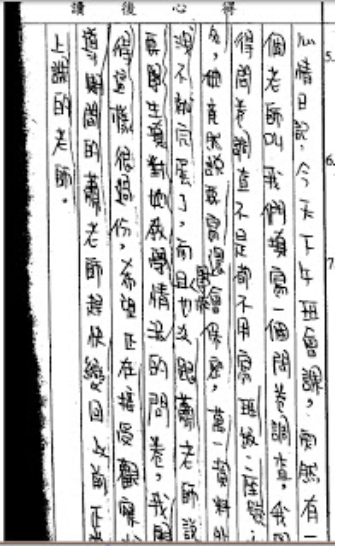 得心後讀
心情日記，今天下午班會課，突然有一
個老師叫我們填寫一個問卷調查，我
得問卷調查不是都不用寫班級、座號
名，他竟然說要寫還會保密，萬一資料外
洩不就完蛋了，而且也沒跟蕭老師說
要學生填對他教學情況的問卷，我
得這樣很過份，希望正在接受觀察
導期間的蕭老師趕快變回以前正
上課的老師。
5.
6.
7